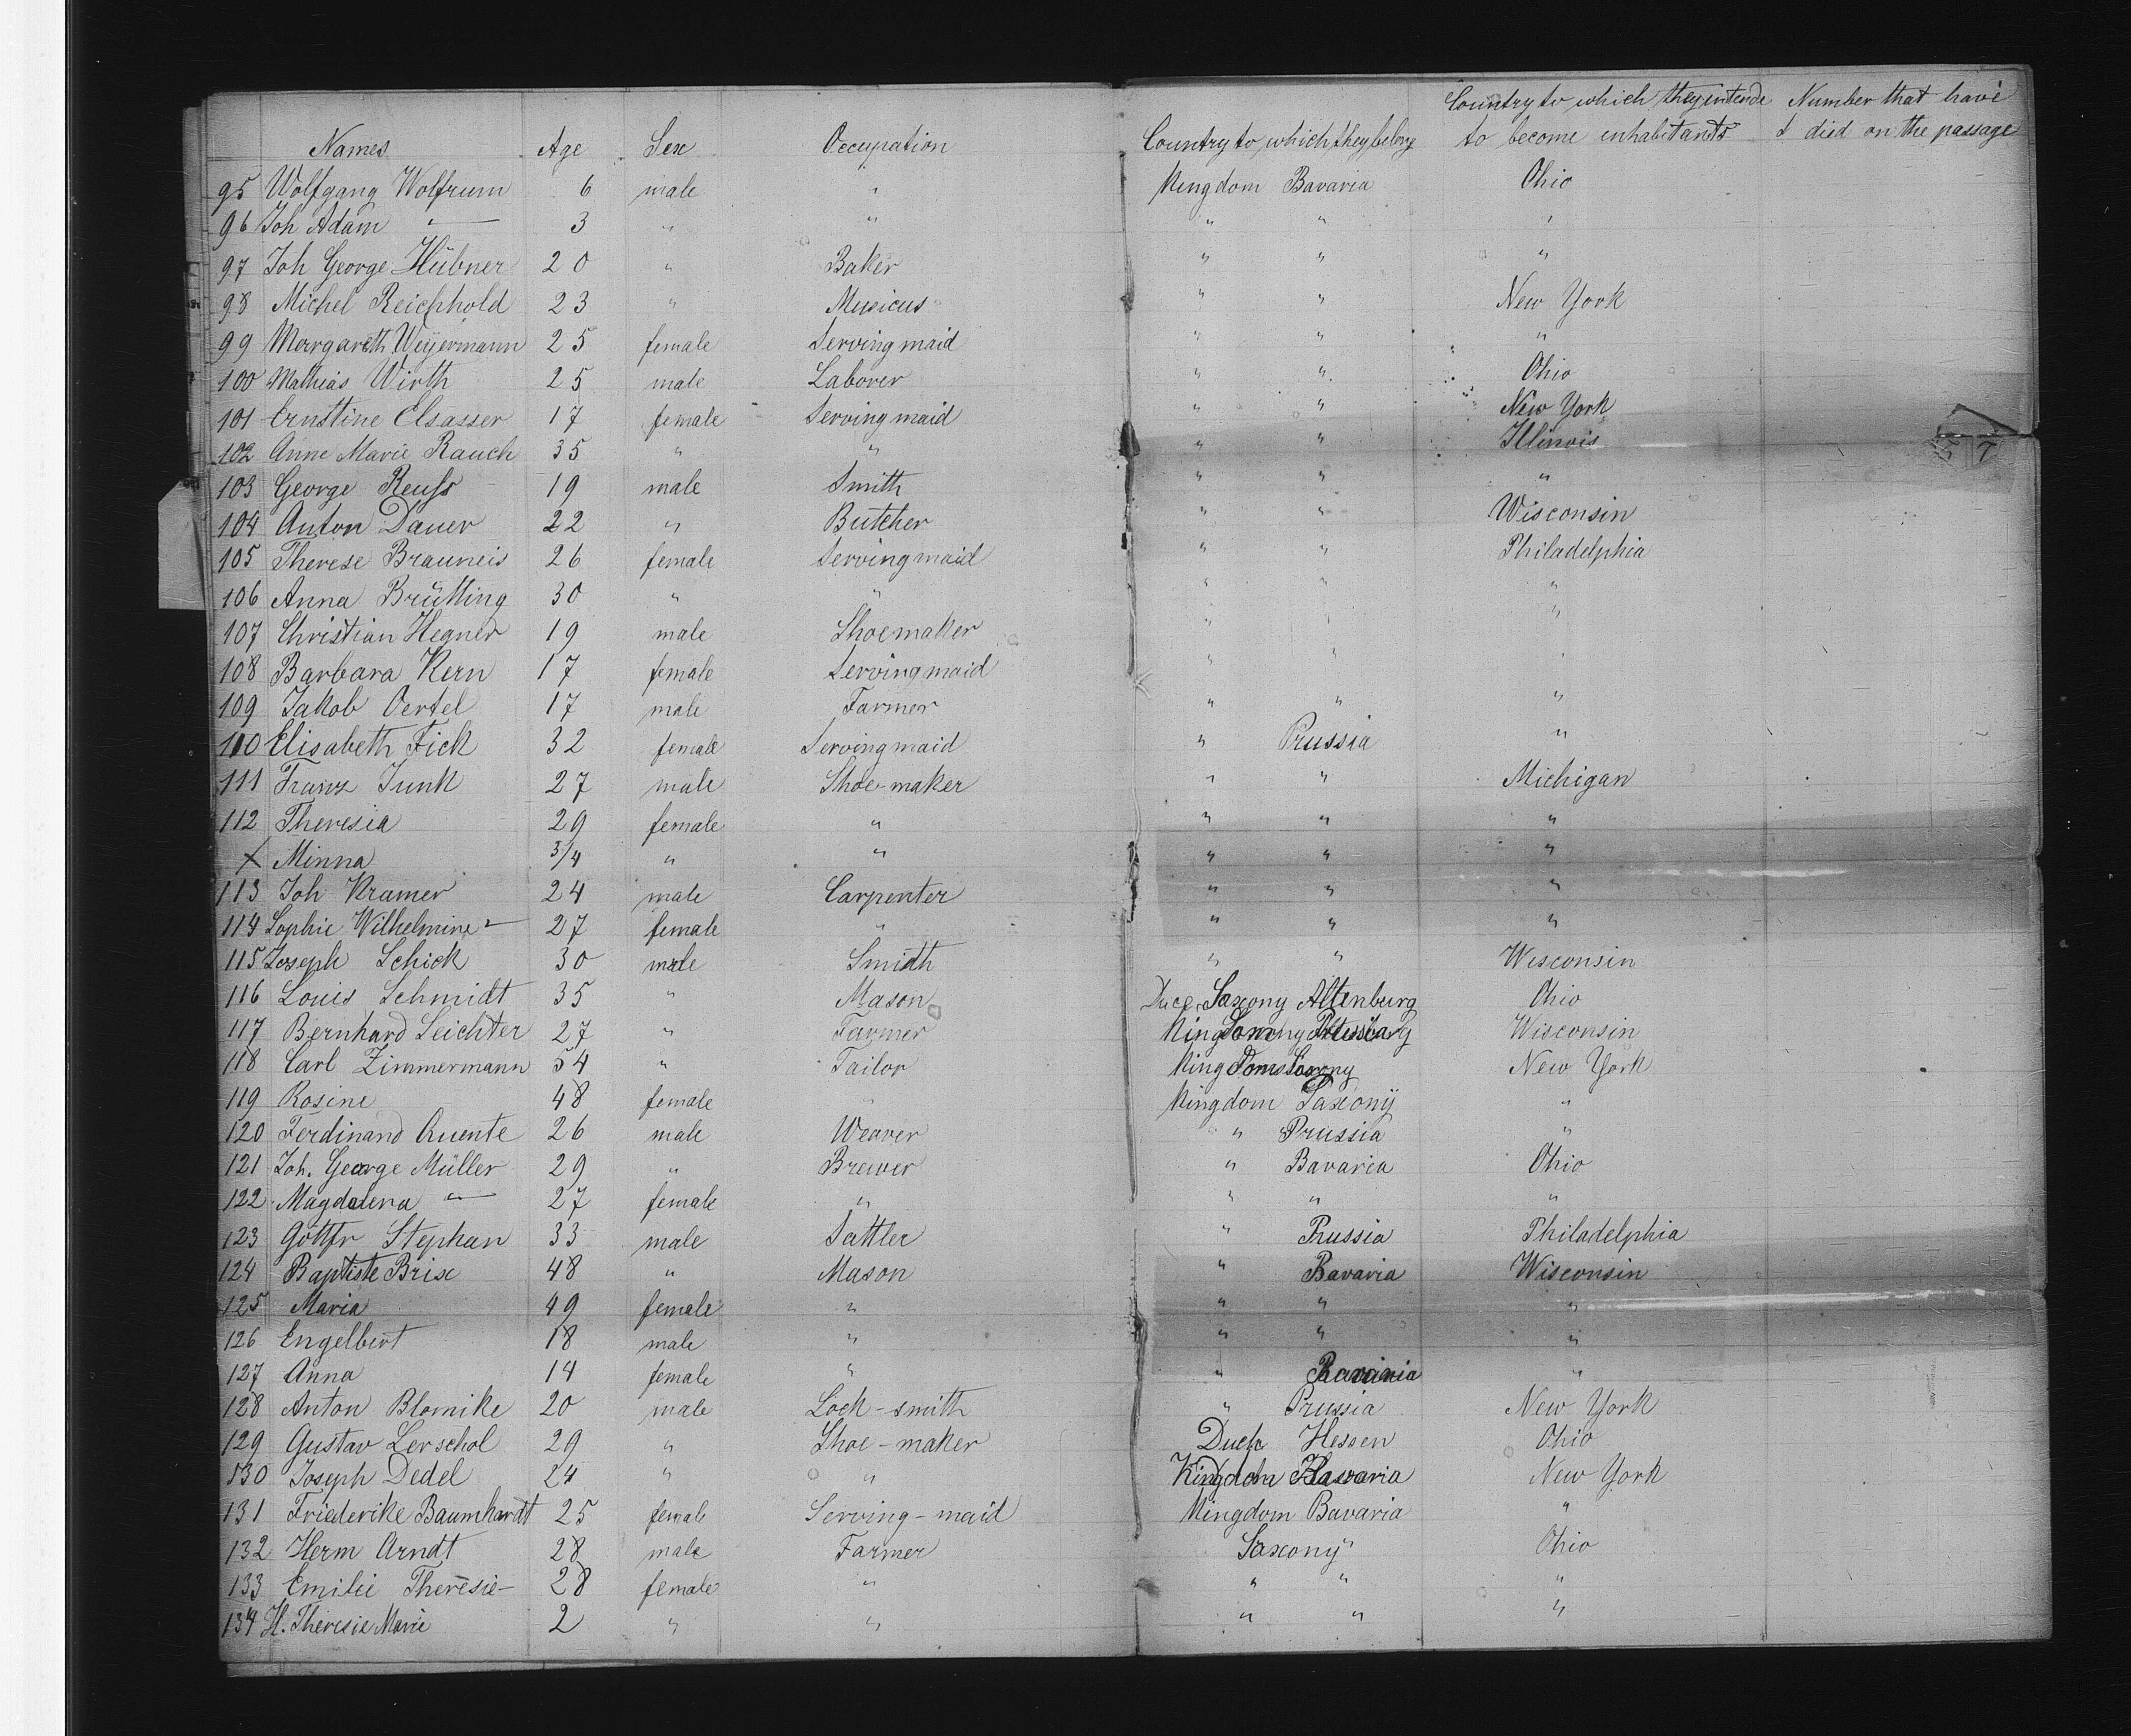 Names Age Sex Occupation Country to which they belong Country to which they intende to become inhabitants Number that have died on the passage
95 Wolfgang Wolfrum 6 male " Kingdom Bavaria Ohio
96 Joh Adam " — 3 " " " " "
97 Joh George Hübner 20 " Baker " " "
98 Michel Reichhold 23 " Musicus " " New York
99 Margareth Weÿermann 25 female Servingmaid " " "
100 Mathias Wirth 25 male Laborer " " Ohio
101 Ernstine Elsasser 17 female Servingmaid " " New York
102 Anne Marie Rauch 35 " " " " Illinois
103 George Reuss 19 male Smith " " "
104 Anton Dauer 22 " Butcher " " Wisconsin
105 Therese Brauneis 26 female Servingmaid " " Philadelphia
106 Anna Brütting 30 " " " " "
107 Christian Hegner 19 male Shoemaker " " "
108 Barbara Kern 17 female Servingmaid " " "
109 Jakob Oertel 17 male Farmer " " "
110 Elisabeth Fick 32 female Servingmaid " Prussia "
111 Franz Junk 27 male Shoe-maker " " Michigan
112 Theresia 29 female " " " "
X Minna 3/4 " " " " "
113 Joh Kramer 24 male Carpenter " " "
114 Sophie Wilhelmine " 27 female " " " "
115 Joseph Schick 30 male Smith " " Wisconsin
116 Louis Schmidt 35 " Mason Saxony Altenburg Ohio
117 Bernhard Leichter 27 " Farmer Wisconsin
118 Carl Zimmermann 54 " Tailor New York
119 Rosine 48 female " Kingdom Saxony "
120 Ferdinand Quente 26 male Weaver " Prussia "
121 Joh. George Müller 29 " Brewer " Bavaria Ohio
122 Magdalena " — 27 female " " " "
123 Gottfr Stephan 33 male Sattler " Prussia Philadelphia
124 Baptiste Brix 48 " Mason " Bavaria Wisconsin
125 Maria 49 female " " " "
126 Engelbert 18 male " " " "
127 Anna 14 female " " Bavaria "
128 Anton Blomike 20 male Lock-smith " Prussia New York
129 Gustav Lerschol 29 " Shoe-maker Hessen Ohio
130 Joseph Dedel 24 " " Bavaria New York
131 Friederike Baumhardt 25 female Serving-maid Kingdom Bavaria "
132 Herm Arndt 28 male Farmer Saxony " Ohio
133 Emilie Theresie — 28 female " " " "
134 H. Theresie Marie 2 " " " " "